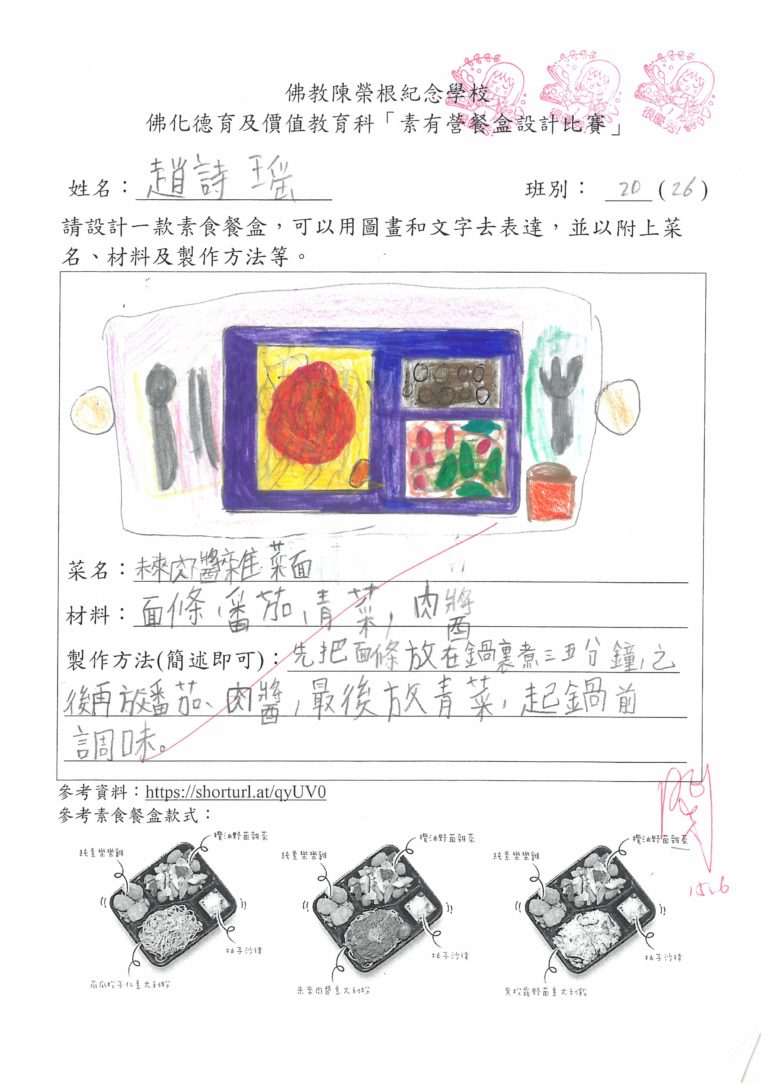 佛教陳榮根紀念學校
佛化德育及價值教育科「素有營餐盒設計比賽」
姓名：趙詩瑶 班別： 2D (26)
請設計一款素食餐盒，可以用圖畫和文字去表達，並以附上菜
名、材料及製作方法等。
菜名：未來肉醬雜菜面
材料：面條，番茄，青菜，肉醬
製作方法(簡述即可)：先把面條放在鍋裏煮三五分鐘，之
後再放番茄、肉醬，最後放青菜，起鍋前
調味。
參考資料：https://shorturl.at/qyUV0
參考素食餐盒款式：
純素樂樂雞 欖油野苗雜菜 純素樂樂雞 欖油野苗雜菜 純素樂樂雞 欖油野苗雜菜
柚子沙律 柚子沙律 柚子沙律
南瓜松子仁意大利粉 未來肉醬意大利粉 黑松露野苗意大利飯
閱
15.6